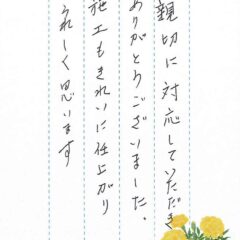 親切に対応していただき
ありがとうございました。
施工もきれいに仕上がり
うれしく思います